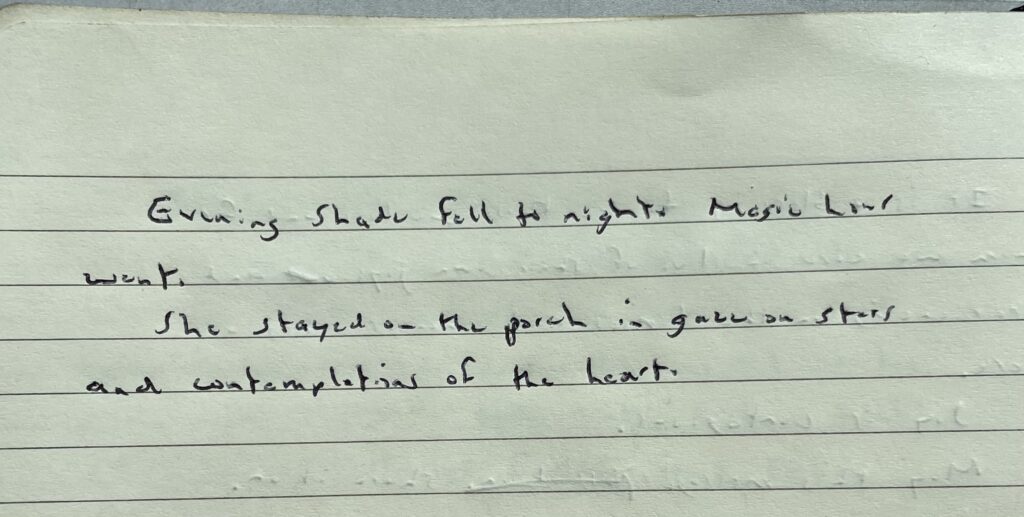 Evening shade fell to night. Magic hour
went.
She stayed on the porch in gaze on stars
and contemplations of the heart.